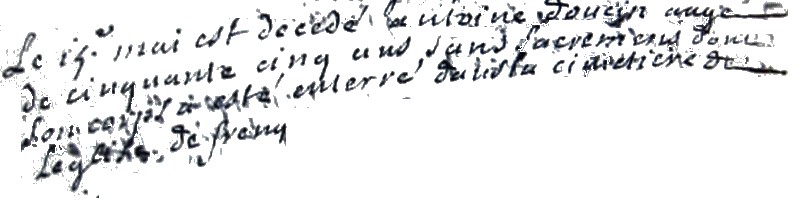 Le 15e mai est decedé antoine doucin augé
de cinquante cinq ans sans sacremens dont
son corps a esté enterré dans la cimetiere de
leglise de